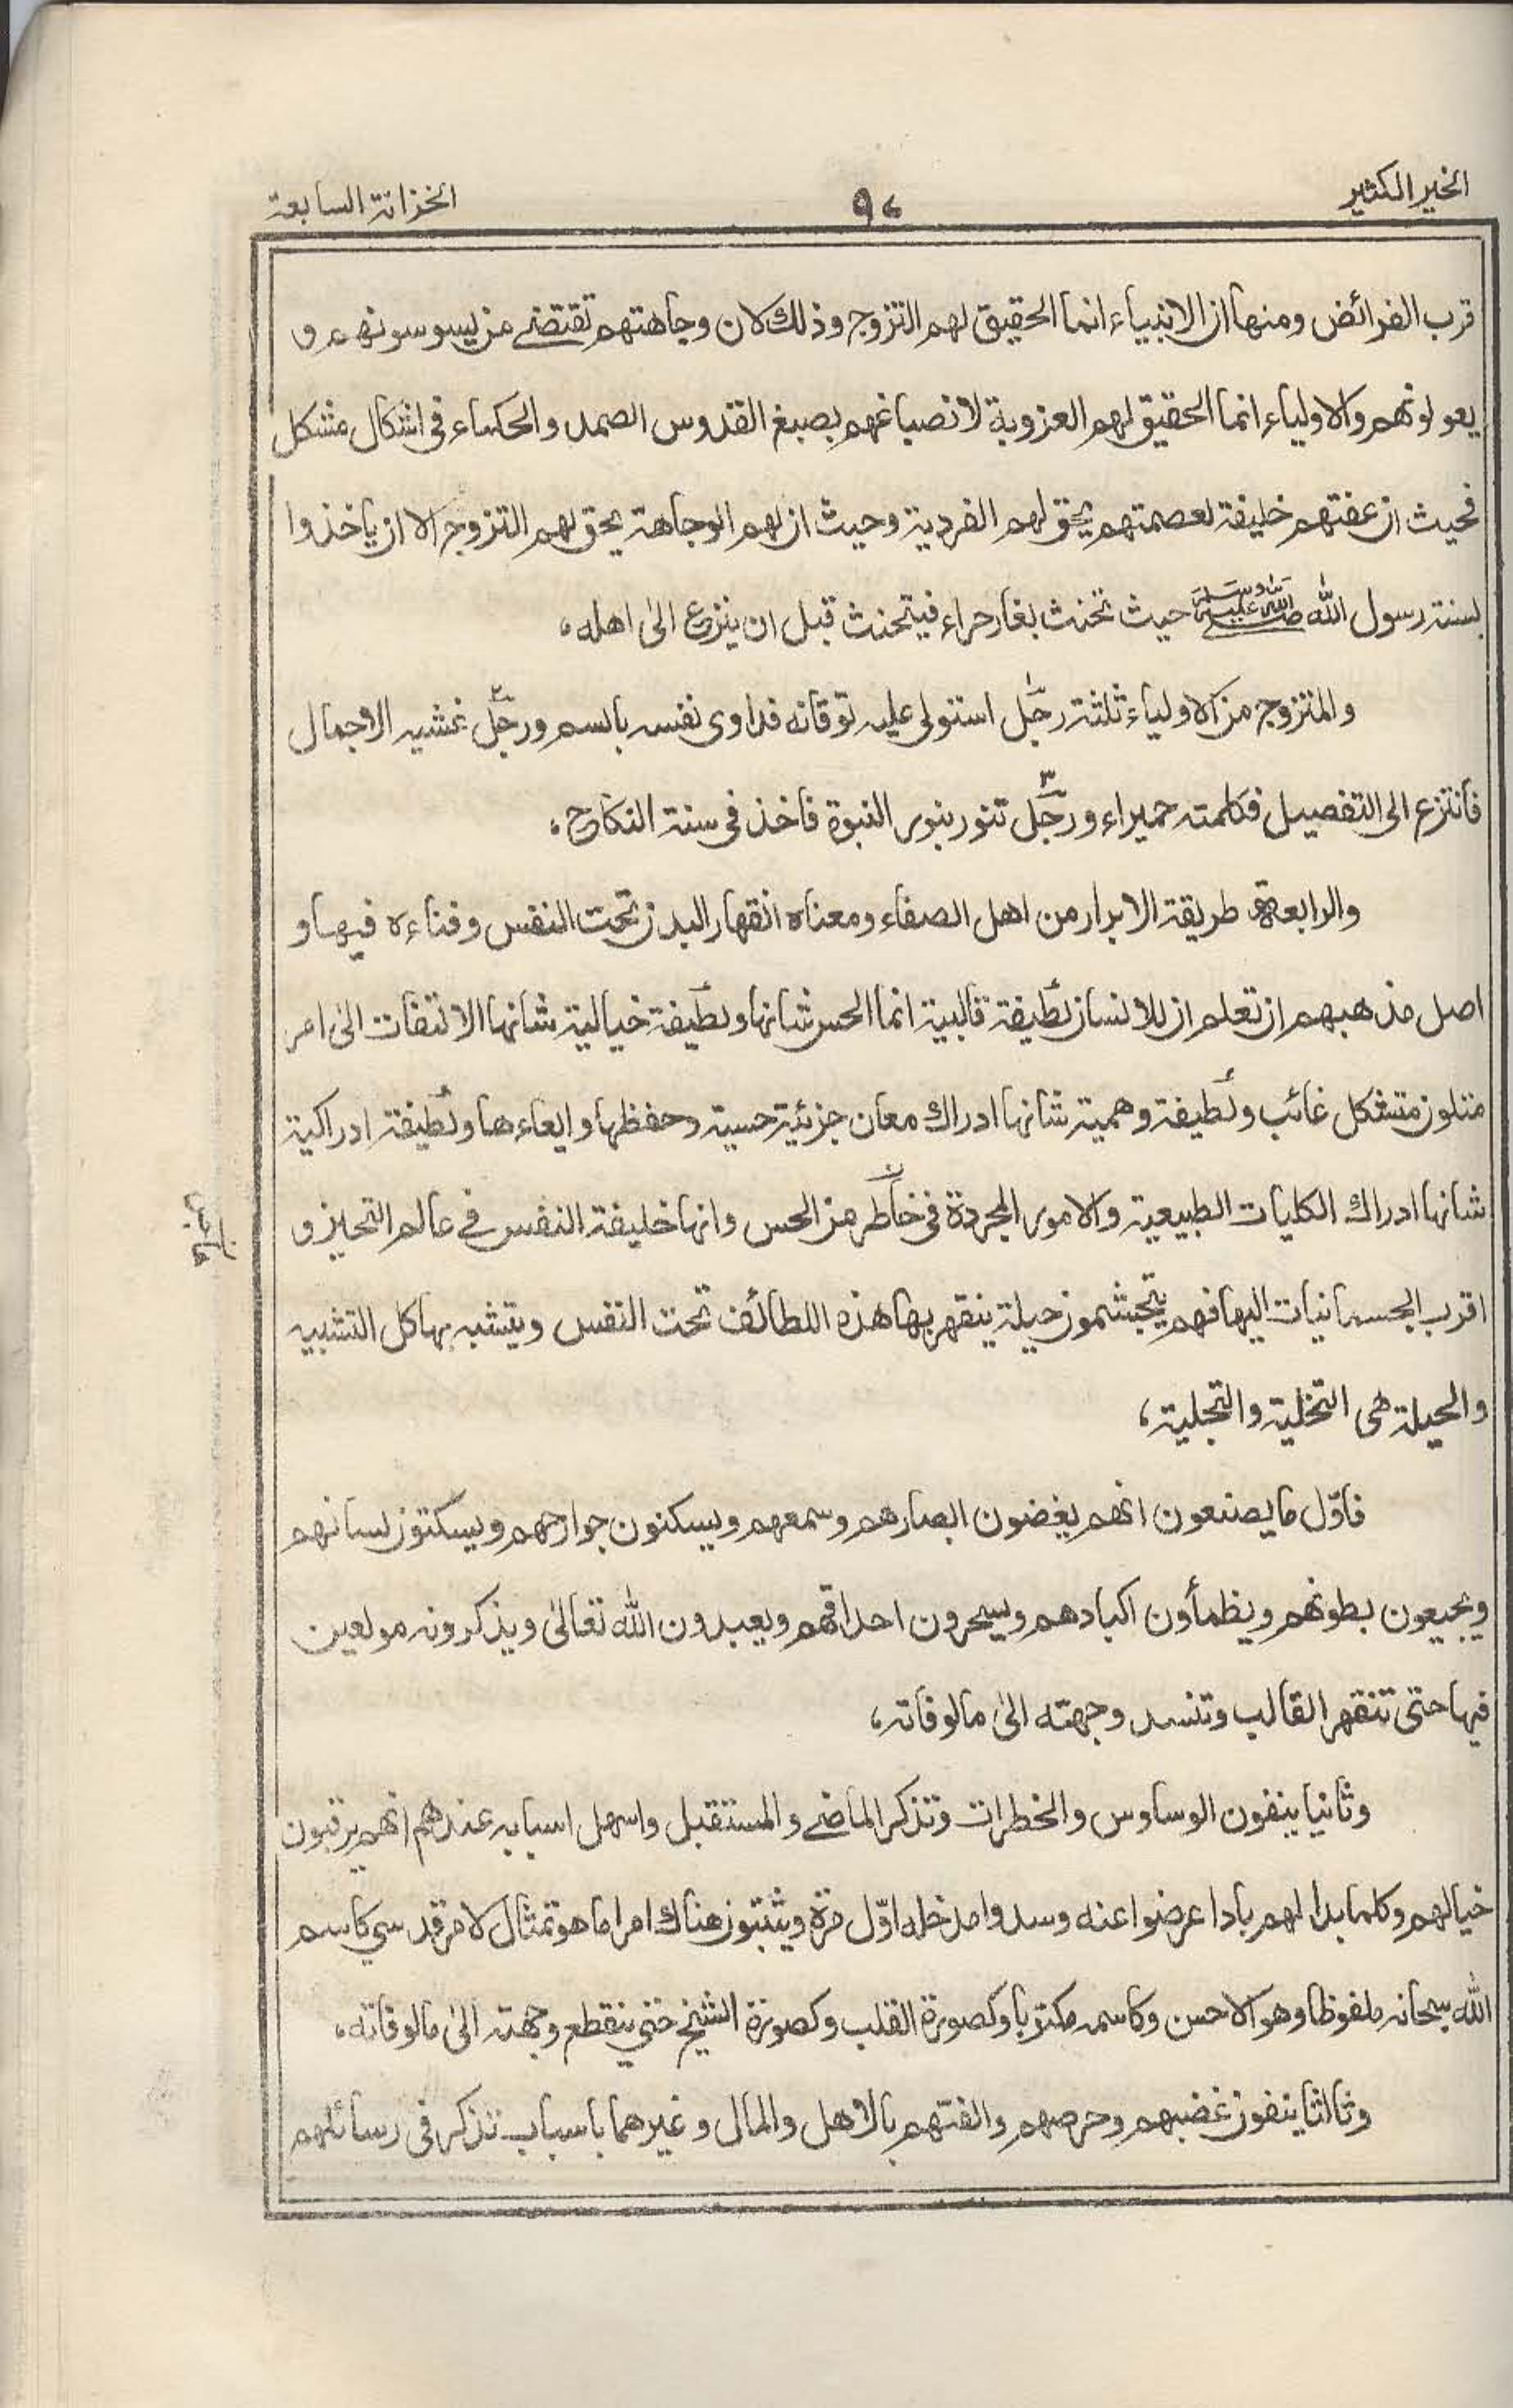 الخير الكثير
٩٤
الخزانة السابعة
قرب الفرائض ومنها ان الانبياء انما الحقيق لهم التزوج وذلك لان وجاهتهم تقتضے من يسوسونهم و
يعولونهم والاولياء انما الحقيق لهم العزوبة لانصباغهم بصبغ القدوس الصمد والحكماء فى اشكال مشكل
فحيث ان عفتهم خليفة لعصمتهم يحق لهم الفردية وحيث ان لهم الوجاهة يحق لهم التزوج الا ان ياخذوا
بسنة رسول الله صلى الله عليه وسلم حيث تحنث بغار حراء فيتحنث قبل ان ينزع الىٰ اهله،
والمتزوج من الاولياء ثلثة رجل۱ استولى عليه توقانه فداوى نفسه بالسم ورجل۲ غشيه الاجمال
فانتزع الى التفصيل فكلمته حميراء ورجل۳ تنور بنور النبوة فاخذ فى سنة النكاح،
والرابعة طريقة الابرار من اهل الصفاء ومعناه انقهار البدن تحت النفس وفناءه فيها و
اصل مذهبهم ان تعلم ان للانسان لطيفة قالبية انما الحس شانها ولطيفة خيالية شانها الالتفات الىٰ امر
متلون متشكل غائب ولطيفة وهمية شانها ادراك معان جزئية حسية وحفظها وايعاءها ولطيفة ادراكية
شانها ادراك الكليات الطبيعية والامور المجردة فى خاطر من الحس وانها خليفة النفس فے عالم التحيز و
اقرب الجسمانيات اليها فهم يتجشمون حيلة ينقهر بها هذه اللطائف تحت النفس ويتشبه بها كل التشبيه
والحيلة هى التخلية والتجلية،
فاوّل ما يصنعون انهم يغضون ابصارهم وسمعهم ويسكنون جوارحهم ويسكتون لسانهم
ويجيعون بطونهم ويظمأون اكبادهم ويسحرون احداقهم ويعبدون الله تعالىٰ ويذكرونه مولعين
فيها حتى تنقهر القالب وتنسد وجهته الىٰ مالوفاته،
وثانيا ينفون الوساوس والخطرات وتذكر الماضے والمستقبل واسهل اسبابه عندهم انهم يرقبون
خيالهم وكلما بدا لهم باد اعرضوا عنه وسدوا مدخله اوّل مرة ويثبتون هناك امرا ما هو تمثال لامر قدسي كاسم
الله سبحانه ملفوظا وهو الاحسن وكاسمه مكتوبا وكصورة القلب وكصورة الشيخ حتى ينقطع وجهته الىٰ مالوفاته،
وثالثا ينفون غضبهم وحرصهم والفتهم بالاهل والمال وغيرهما باسباب تذكر فى رسائلهم